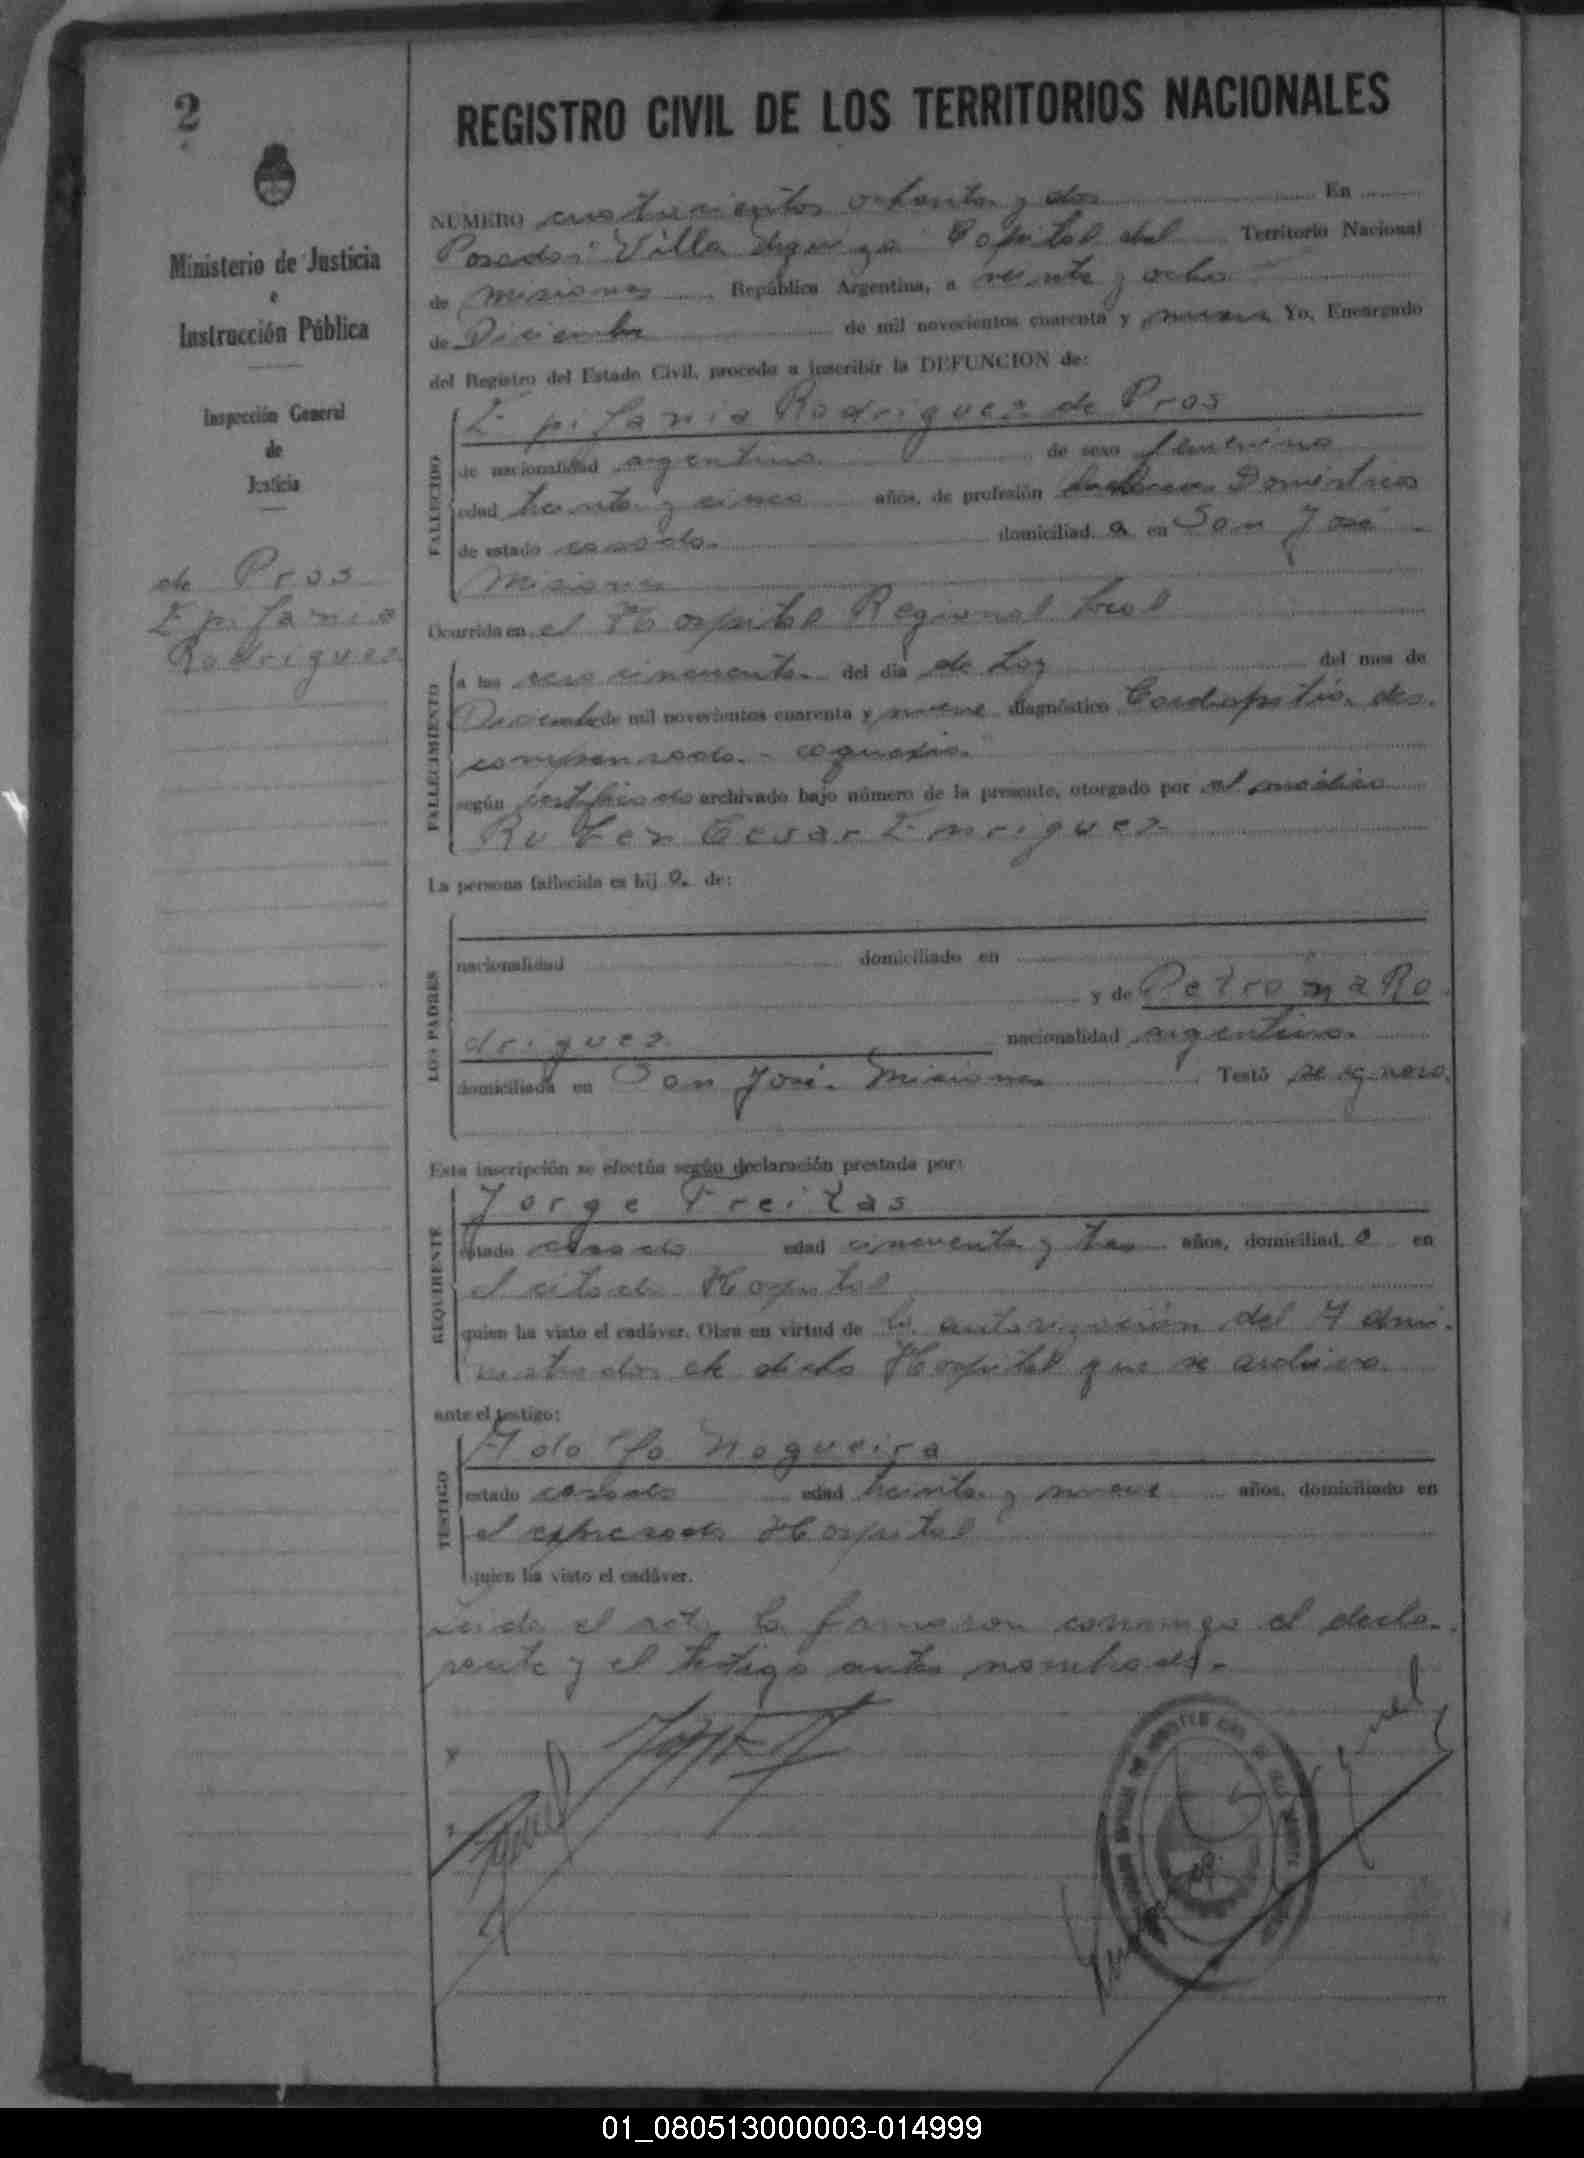 2
REGISTRO CIVIL DE LOS TERRITORIOS NACIONALES
Ministerio de Justicia
e
Instrucción Pública
Inspección General
de
Justicia
de Pros
Epifania
Rodriguez
NUMERO cuatrocientos ochenta y dos En
Posadas Villa Capital del Territorio Nacional
de Misiones República Argentina, a veinte y ocho
de Diciembre de mil novecientos cuarenta y nueve Yo, Encargado
del Registro del Estado Civil, procedo a inscribir la DEFUNCION de:
FALLECIDO
Epifania Rodriguez de Pros
de nacionalidad argentina de sexo femenino
edad treinta y cinco años, de profesión Domésticos
de estado casada domiciliad a en San José
Misiones
Ocurrida en el Hospital Regional local
FALLECIMIENTO
a las cero cincuenta del día de hoy del mes de
Diciembre de mil novecientos cuarenta y nueve diagnóstico Cardiopatía des-
compensada - caquexia
según certificado archivado bajo número de la presente, otorgado por el médico
Ruben Cesar Enriquez
La persona fallecida es hij a de:
LOS PADRES
nacionalidad domiciliado en
y de Petrona Ro
driguez nacionalidad argentina
domiciliada en San José Misiones Testó se ignora.
Esta inscripción se efectúa según declaración prestada por:
REQUIRENTE
Jorge Freitas
estado casado edad cincuenta y tres años, domiciliad o en
el citado Hospital
quien ha visto el cadáver. Obra en virtud de la autorización del Admi-
nistrador de dicho Hospital que se archiva.
ante el testigo:
TESTIGO
Adolfo Nogueira
estado casado edad treinta y nueve años, domiciliado en
el expresado Hospital
quien ha visto el cadáver.
Leida el acta la firmaron conmigo el decla-
rante y el testigo antes nombrado.-
01_080513000003-014999